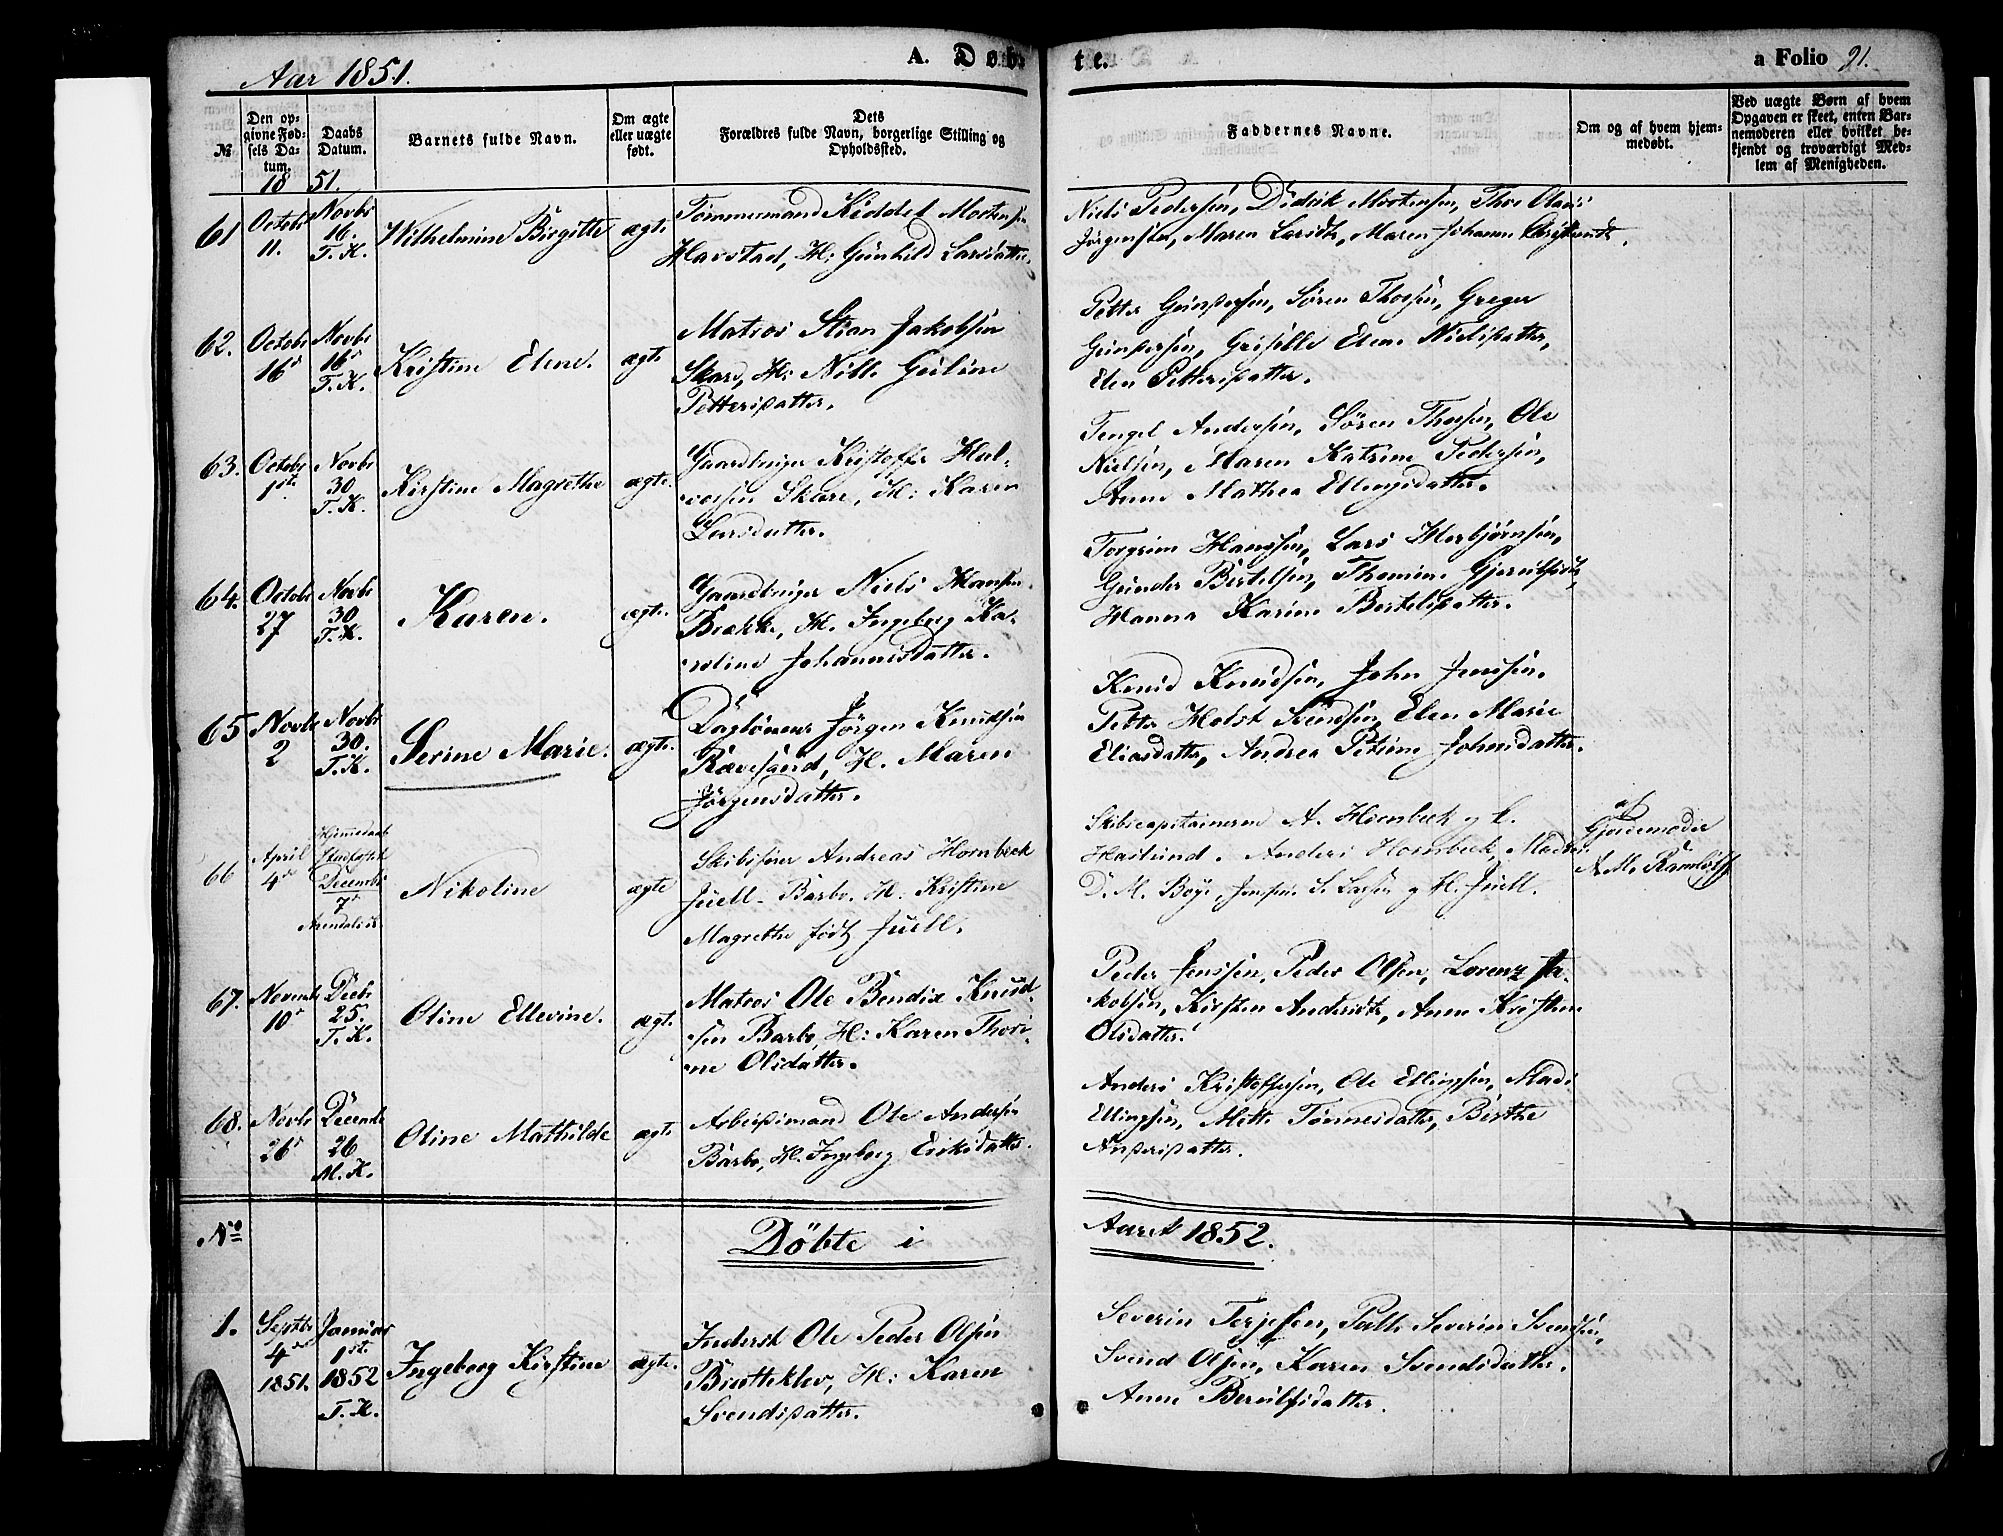 Aar 1851.
A. Döb
te.
a Folio 21.
№
Den op-
givne Fød-
sels Da-
tum.
Daabs
Datum.
Barnets fulde Navn.
Om ægte
eller uægte
født.
Dets
Forældres fulde Navn, borgerlige Stilling og
Opholdssted.
Faddernes Navne.
Om og af hvem hjem-
medøbt.
Ved uægte Børn af hvem
Opgaven er skeet, enten Bar-
nemoderen eller hvilket be-
kjendt og troværdigt Med-
lem af Menigheden.
18 51.
61 Octobr 11. Novbr 16. T. K. Wilhelmine Birgitte ægte
Tömmermand Kiddel Mortensen
Havstad, H: Günhild Larsdatter.
Niels Pedersen, Didrik Mortensen, Thor Olaus
Jörgensen, Maren Larsdtr, Maren Johanne
62. Octobr 16d Novbr 16d T. K. Kristine Elene. ægte
Matros Stian Jakobsen
Skare, H: Nille Gurine
Pettersdatter.
Petter Gundersen, Sören Thorsen, Greger
Gundersen, Grisille Elene Nielsdatter,
Elen Pettersdatter.
63. Octobr 1ste Novbr 30 T. K. Kirstine Magrethe ægte.
Gaardbruger Kristoffer Hal-
vorsen Skare, H: Karen
Larsdatter.
Tengel Andersen, Sören Thorsen, Ole
Nielsen, Maren Katrine Pedersen,
Anne Mathea Ellingsdatter.
64. Octobr 27 Novbr 30 T. K. Karen. ægte.
Gaardbruger Niels Hansen
Brække, H. Ingeborg Ka-
roline Johannesdatter.
Torgrim Hanssen, Lars Herbjörnsen,
Gunder Bertelsen, Thomine
Hanna Karine Bertelsdatter.
65 Novbr 2 Novbr 30. T. K. Serine Marie. ægte.
Daglönner Jörgen Knudsen
Rævesand, H. Maren
Jörgensdatter.
Knud Knudsen, John Jenssen,
Petter Holst Svendsen, Elen Marie
Eliasdatter, Andrea Petrine Johnsdatter.
66 April 4de Hjemmedaab Stadfæstet Decembr 7d Arendals K. Nikoline ægte
Skibsförer Andreas Hornbeck
Juell - Barbo. H. Kristine
Magrethe födt Juell.
Skibscapitainerne A. Hornbeck og C.
Haslund. Anders Hornbeck, Mad:
D. M. Boye, Jomfru S. Larsen og H. Juell.
af
Gjordemoder
A. M. Randulff
67. Novembr 10d Decbr 25. T. K. Oline Ellevine. ægt.
Matros Ole Bendix Knud-
sen Barbo, H: Karen Thori-
ne Olsdatter.
Peder Jenssen, Peder Olsen, Lorenz Ja-
kobsen, Kirsten Andersdtr, Anne Kristine
Olsdatter.
68. Novbr 26d Decembr 26 M. K. Oline Mathilde ægte
Arbeidsmand Ole Andersen
Barbo, H. Ingeborg Eriksdatter.
Anders Kristoffersen, Ole Ellingsen, Mads
Ellingsen, Mette Tönnesdatter, Birthe
Andersdatter.
No
Döbte i
Aaret 1852.
1. Septbr 4de 1851. Januar 1ste 1852 T. K. Ingeborg Kirstine ægte.
Inderst Ole Peder Olsen
Bratteklev, H: Karen
Svendsdatter.
Severin Terjesen, Peder Severin Svendsen,
Svend Olsen, Karen Svendsdatter.
Anne Berulfsdatter.